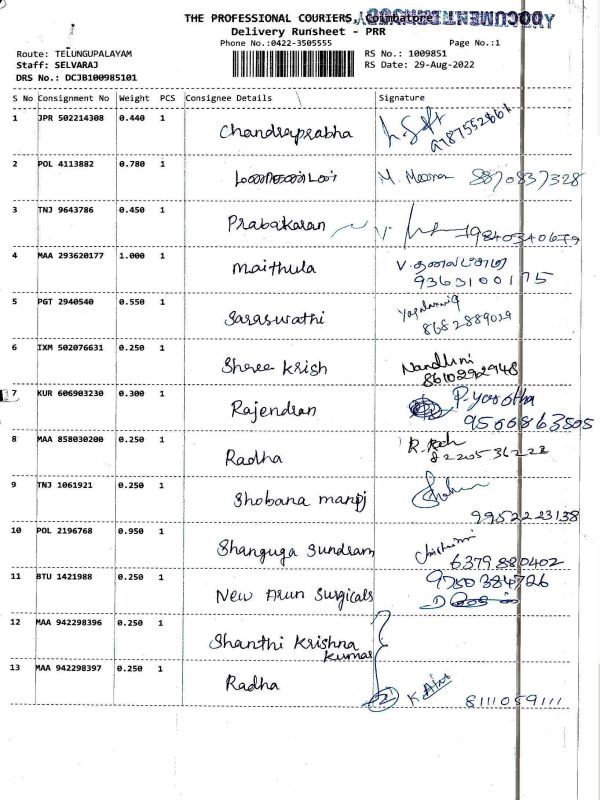 THE PROFESSIONAL COURIERS, Coimbatore
Delivery Runsheet - PRR
Phone No.:0422-3505555 Page No.:1
Route: TELUNGUPALAYAM RS No.: 1009851
Staff: SELVARAJ RS Date: 29-Aug-2022
DRS No.: DCJB100985101
S No Consignment No Weight PCS Consignee Details Signature
1 JPR 502214308 0.440 1 Chandraprabha 9787552866
2 POL 4113882 0.780 1 M. 8870837328
3 TNJ 9643786 0.450 1 Prabakaran
4 MAA 293620177 1.000 1 Maithula V.
9363100175
5 PGT 2940540 0.550 1 Saraswathi
8682889029
6 IXM 502076631 0.250 1 Shree Krish Nandhini
8610292948
7 KUR 606903230 0.300 1 Rajendran P. Yasotha
9566863505
8 MAA 858030200 0.250 1 Radha
8220536222
9 TNJ 1061921 0.250 1 Shobana manoj
9952223138
10 POL 2196768 0.950 1 Shanguga Sundram
6379880402
11 BTU 1421988 0.250 1 New Arun Surgicals 9750384726
12 MAA 942298396 0.250 1 Shanthi Krishna
kumar
13 MAA 942298397 0.250 1 Radha 2 8111059111